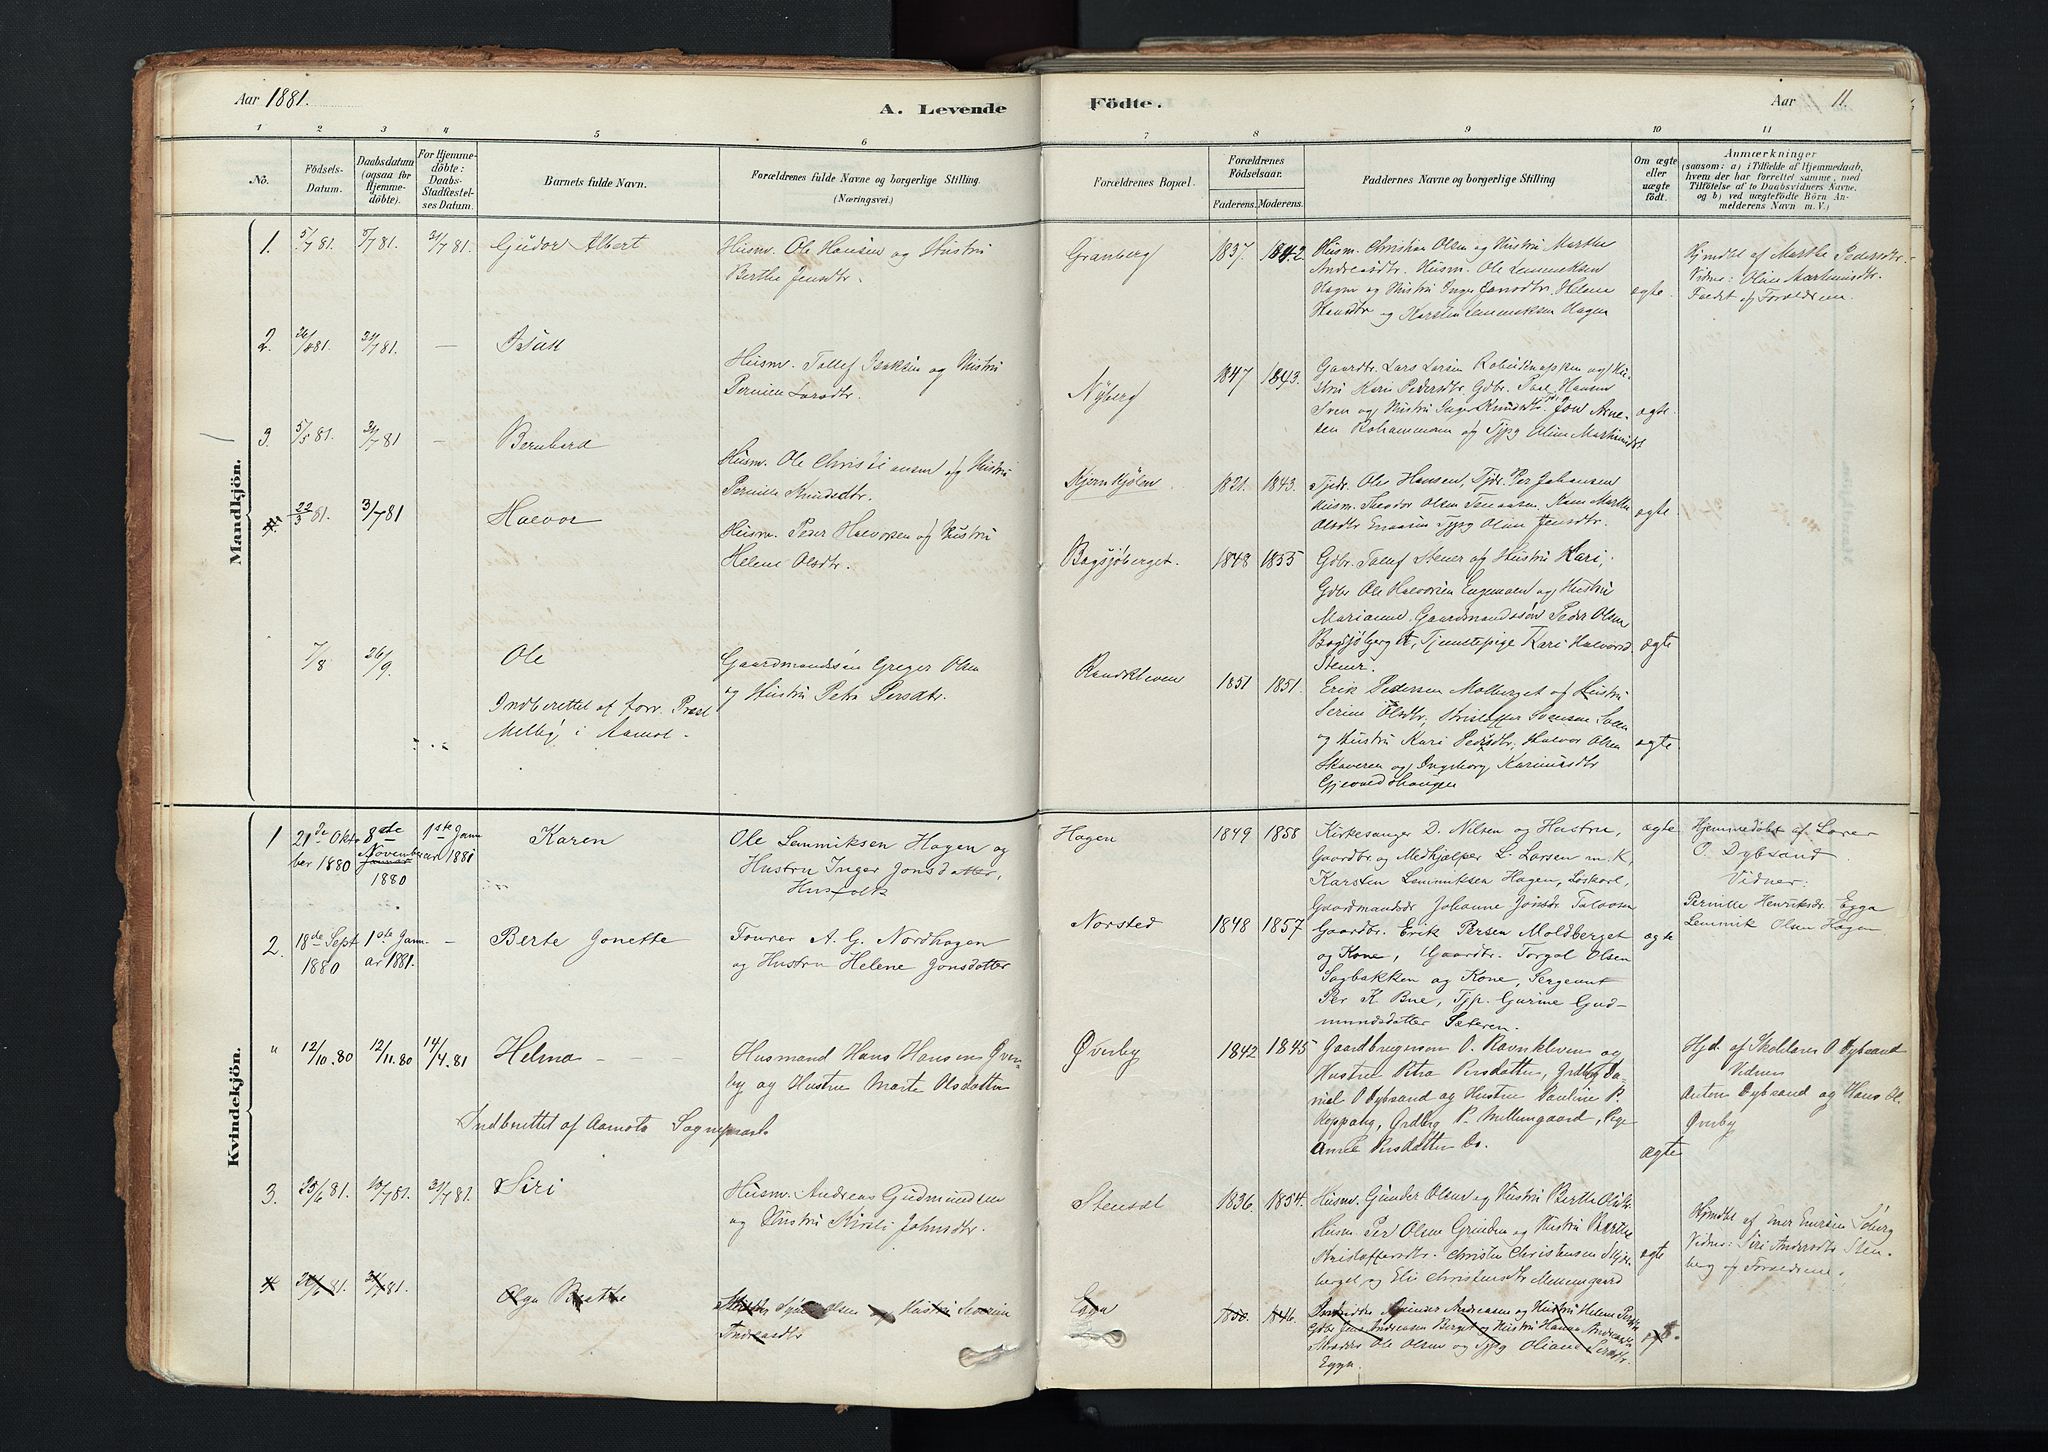 Aar 1881.
A. Levende
Födte.
Aar 11.
1 2 3 4 5 6 7 8 9 10 11
No.
Födsels-
Datum.
Daabsdatum
(ogsaa for
Hjemme-
döbte).
For Hjemme-
döbte:
Daabs-
Stadfæstel-
ses Datum.
Barnets fulde Navn.
Forældrenes fulde Navne og borgerlige Stilling.
(Næringsvei.)
Forældrenes Bopæl.
Forældrenes
Födselsaar.
Faderens. Moderens.
Faddernes Navne og borgerlige Stilling
Om ægte
eller
uægte
födt.
Anmærkninger
(saasom: a) i Tilfælde af Hjemmedaab,
hvem der har forrettet samme, med
Tilföielse af to Daabsvidners Navne,
og b) ved uægtefödte Börn An-
melderens Navn m. V.)
Mandkjön.
1. 5/7 81. 5/7 81. 31/7 81. Gudor Albert
Husm. Ole Hansen og Hustru
Berthe Jensdtr.
Granberg 1837. 1842.
Husm. Christian Olsen og Hustru Marthe
Andreasdtr. Husm. Ole Lemmeksen
Hagen og Hustru Inger Jonsdtr. Helene
Hansdtr og Karsten Lemmeksen Hagen
ægte.
Hjmdbt af Marthe Pedersdtr.
Vidne: Oline Martinusdtr.
Fadet af Forældrene.
2. 31/7 81. — Isak
Husm. Tollef Isaksen og Hustru
Pernille Larsdtr.
Nyberg 1847 1843.
Gaardbr. Lars Larsen og Hu-
stru Kari Pedersdtr. Gdbr. Paul Hansen
og Hustru Inger Knudsdtr. Jon Arne-
sen og Tjpg Oline Martinusdtr
ægte.
3. 5/5 81. 31/7 81 — Bernhard
Husm. Ole Christiansen og Hustru
Pernille Knudsdtr.
1821. 1843.
Tjdr. Ole Hansen, Tjdr. Per Johansen
Husm. Theodor Olsen Marthea
Olsdtr Tjpg Oline Jensdtr.
ægte
4. 22/3 81. 3/7 81 Halvor
Husm. Peder Halvorsen og Hustru
Helene Olsdtr.
Bagsjöberget. 1848 1855
Gdbr. Tollef Stener og Hustru Kari,
Gdbr Ole Halvorsen Engemoen og Hustru
Marianne. Gaardmandssön Peder Olsen
Bagsjöberget, Tjenestepige Kari Halvorsd.
Stener.
ægte
7/8 26/9 Ole
Indberettet af forr. Præst
Melby i Aamot.
Gaardmandssön Greger Olsen
og Hustru Petra Persdtr.
Ravnkleven 1851 1851.
Erik Pedersen Molberget og Hustru
Serine Olsdtr, Kristoffer Svensen Sveen
og Hustru Kari Pedersdtr. Halvor Olsen
Skaveren og Ingeborg Karinusdtr
ægte
Kvindekjön.
1 21de Okto- 8de 1ste Janu-
ber 1880 November ar 1881
Januar
1880
Karen
Ole Lemmiksen Hagen og
Hustru Inger Jonsdatter,
Husfolk
Hagen 1849 1858
Kirkesanger D. Nilsen og Hustru,
Gaardbr. og Medhjælper L. Larsen m. K,
Karsten Lemmiksen Hagen, Löskarl,
Gaardmandsdr Johanne Jonsdr
ægte
Hjemmedöbt af Lærer
O. Dybsand
Vidner:
Pernille Henriksdr. Egga
Lemmik Olsen Hagen
2. 18de Sept 1ste Janu- —
1880 ar 1881.
Berte Jonette
Fourer A. G. Nordhagen
og Hustru Helene Jonsdatter
Norsted 1848 1857
Gaardbr. Erik Persen Moldberget
og Kone, Gaardbr. Torgal Olsen
Sagbakken og Kone, Sergeant
Per K. Bue, Tjp. Gurine Gud-
mundsdatter Sæteren.
ægte
" 12/10.80 12/11.80 14/4.81 Helma — —
Indberettet af Aamots Sognepræst
Husmand Hans Hansen Över-
by og Hustru Marte Olsdatter
Överby 1842 1845
Gaardbrugersön O. Ravnkleven og
Hustru Petra Persdatter, Grdbg Da-
niel O Dybsand og Hustru Pauline P.
Koppang, Grdbg P. Mellemgaard, Pige
Anne Persdatter Do.
ægte
Hjd. af Skolelærer O Dybsand
Vidner
Anton Dybsand og Hans Ol.
Överby
3. 25/6 81. 10/7 81. 31/7 81. Siri
Husm. Andreas Gudmundsen
og Hustru Kirsti Johnsdtr.
Stensæt 1836. 1854.
Husm. Gunder Olsen og Hustru Berthe Olsdtr
Husm. Per Olsen Grinden og Hustru Berthe
Kristoffersdtr. Christen Christensen
berget og Eli Christensdtr Mellemgaard
ægte
Hjmdbt af Ener Enersen Soberg
Vidne: Siri Andersdtr Sten-
berg og Forældrene.
4 81. 31/7 81. Olga Berthe
og Hustru
Andreasdtr
Eggn 1850. 1846.
Gunder Andreasen og Hustru Helene
Gdbr Jens Andreasen Berget og Hustru Hanna
Ole Olsen og Tjpg Oliane
Eggn.